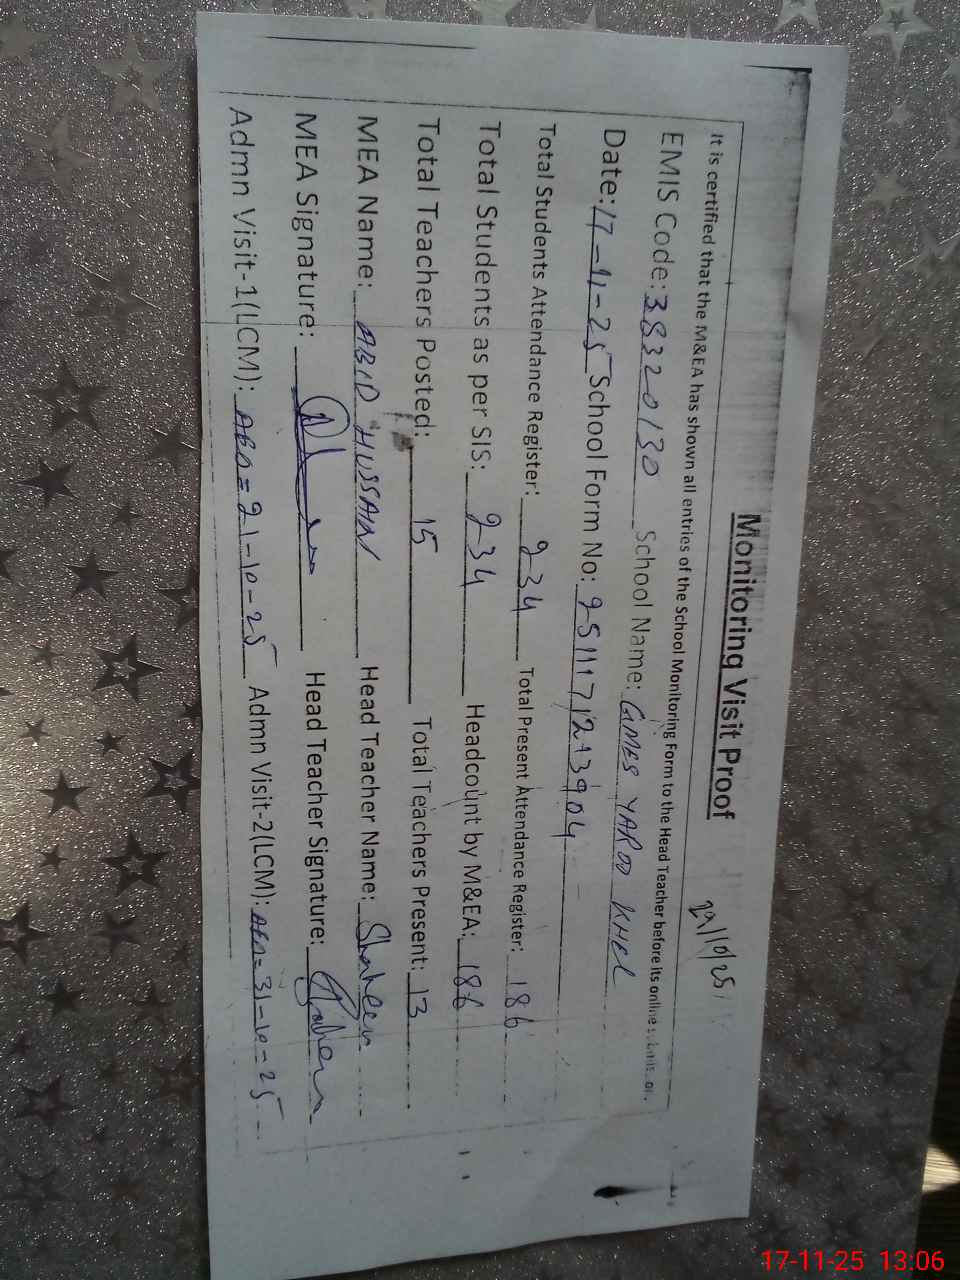 Monitoring Visit Proof
22/10/25
It is certified that the M&EA has shown all entries of the School Monitoring Form to the Head Teacher before its online
EMIS Code: 38320130 School Name: GMES YAROO KHEL
Date: 17-11-25 School Form No: 251117123904
Total Students Attendance Register: 234 Total Present Attendance Register: 186
Total Students as per SIS: 234 Headcount by M&EA: 186
Total Teachers Posted: 15 Total Teachers Present: 13
MEA Name: ABID HUSSAIN Head Teacher Name: Shaheen
MEA Signature: Head Teacher Signature: Shaheen
Admn Visit-1(LCM): AEO=21-10-25 Admn Visit-2(LCM): AEO=31-10-25
17-11-25 13:06